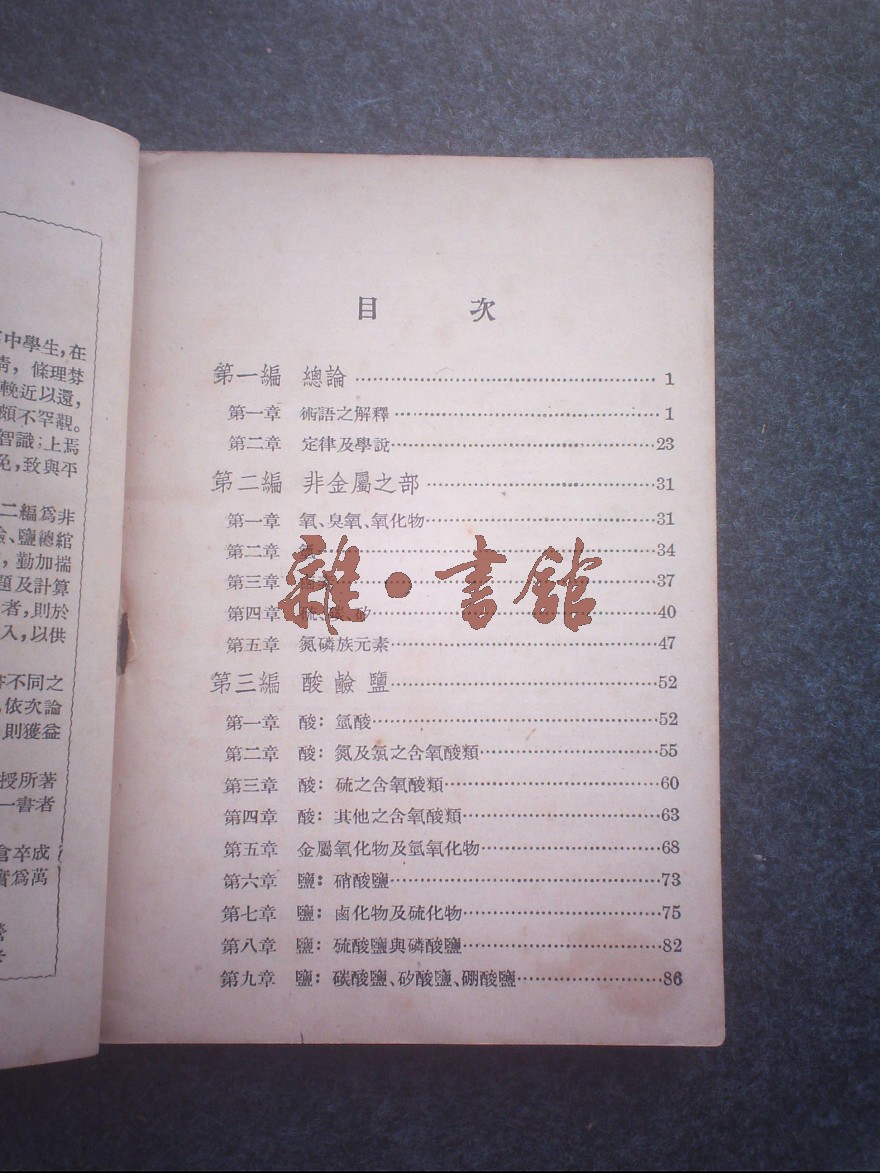 中學生,在
條理棼
輓近以還,
頗不罕觀。
智識;上焉
免,致與平
二編爲非
鹽總綰
勤加揣
題及計算
者,則於
入,以供
不同之
依次論
則獲益
授所著
一書者
倉卒成
實爲萬
目 次
第一編 總論 1
第一章 術語之解釋 1
第二章 定律及學說 23
第二編 非金屬之部 31
第一章 氧、臭氧、氧化物 31
第二章 34
第三章 37
第四章 硫、碳、矽 40
第五章 氮磷族元素 47
第三編 酸鹼鹽 52
第一章 酸:氫酸 52
第二章 酸:氮及氯之含氧酸類 55
第三章 酸:硫之含氧酸類 60
第四章 酸:其他之含氧酸類 63
第五章 金屬氧化物及氫氧化物 68
第六章 鹽:硝酸鹽 73
第七章 鹽:鹵化物及硫化物 75
第八章 鹽:硫酸鹽與磷酸鹽 82
第九章 鹽:碳酸鹽、矽酸鹽、硼酸鹽 86
雜·書館